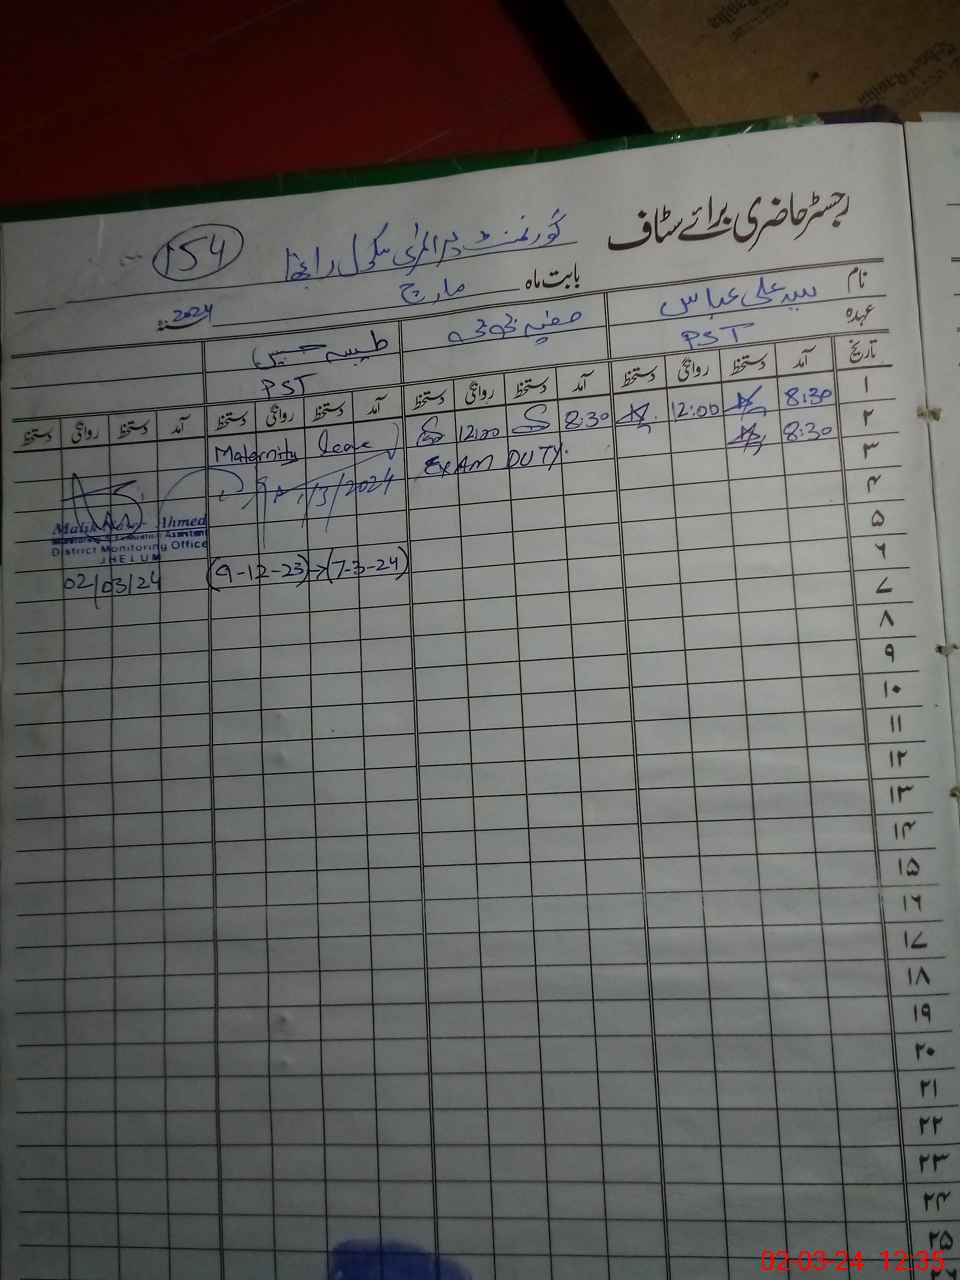 رجسٹر حاضری برائے سٹاف
گورنمنٹ پرائمری سکول
154
بابت ماہ مارچ 2024
نام سید علی عباس
طیبہ حسین
عہدہ PST
PST
تاریخ آمد دستخط روانگی دستخط آمد دستخط روانگی دستخط آمد دستخط روانگی دستخط آمد دستخط روانگی دستخط
۱ 8:30 12:00 8:30 12:00 Maternity leave
۲ 8:30 EXAM DUTY.
۳
۴
۵
۶
۷
۸
۹
۱۰
۱۱
۱۲
۱۳
۱۴
۱۵
۱۶
۱۷
۱۸
۱۹
۲۰
۲۱
۲۲
۲۳
۲۴
۲۵
/3/2024
(9-12-23)→(7-3-24)
Ahmed
Monitoring & Evaluation Assistant
District Monitoring Office
JHELUM
02/03/24
02-03-24 12:35